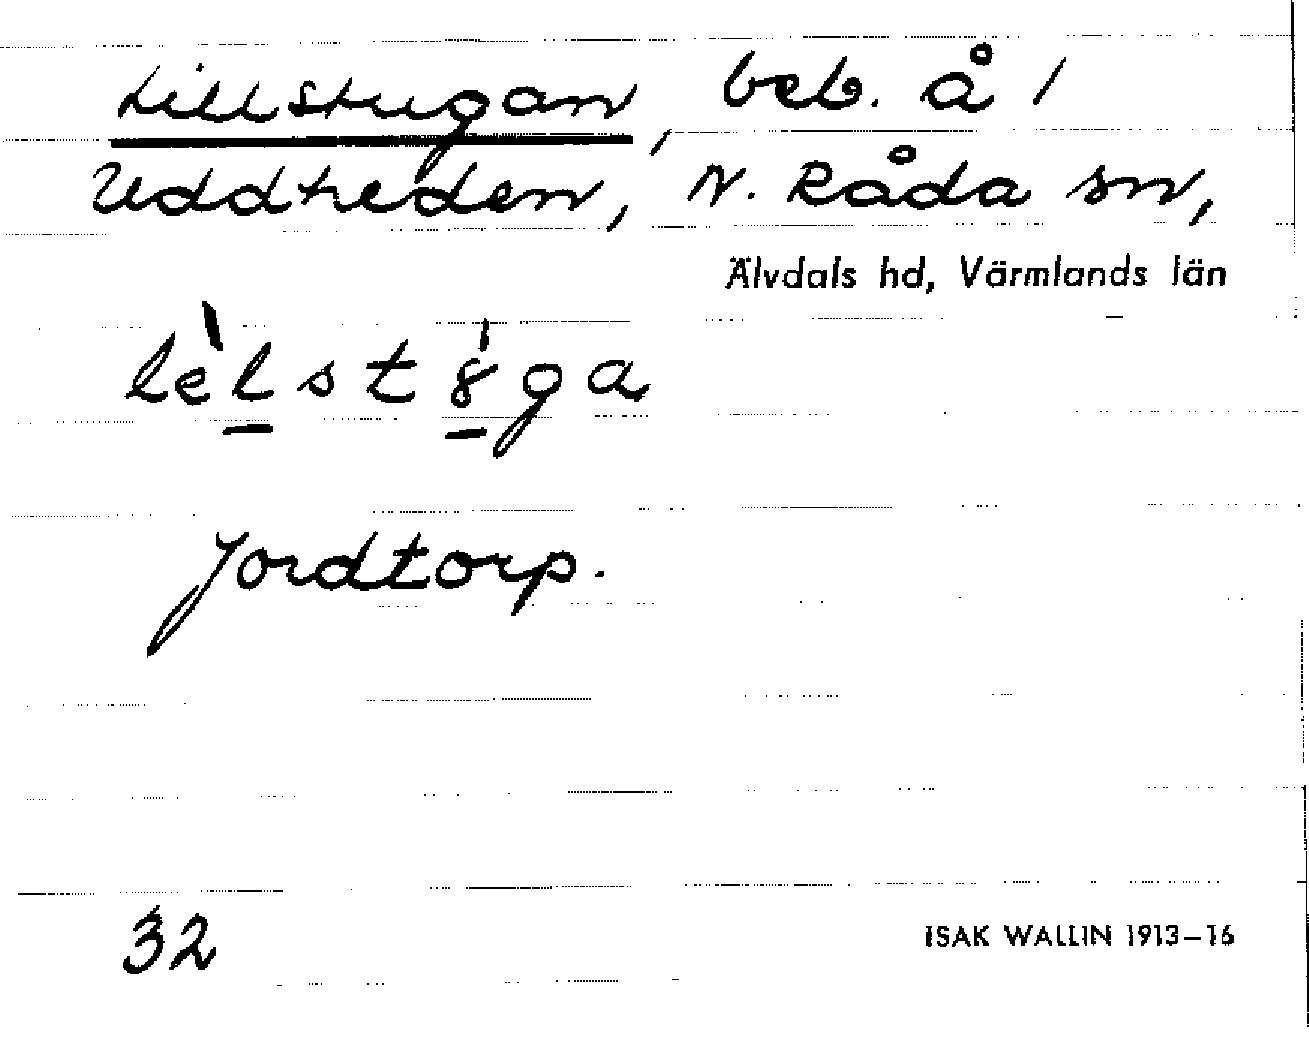 Lillstugan, beb. å /
Uddheden, N. Råda sn,
Älvdals hd, Värmlands län
lèlst8́ga
Jordtorp.
32
ISAK WALLIN 1913–16